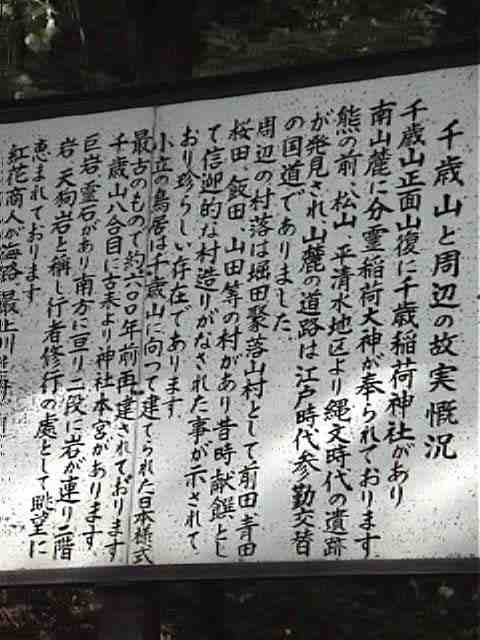 千歳山と周辺の故実慨況
千歳山正面山復に千歳稲荷神社があり
南山麓に分霊稲荷大神が奉られております
熊の前、松山、平清水地区より縄文時代の遺跡
が発見され山麓の道路は江戸時代参勤交替
の国道でありました
周辺の村落は堀田聚落山村として前田、青田
桜田、飯田、山田等の村があり昔時献饌とし
て信迎的な村造りがなされた事が示されて
おり珍らしい存在であります
小立の鳥居は千歳山に向って建てられた日本様式
最古のもので約六〇〇年前再建されております
千歳山八合目に古来より神社本宮があります
巨岩霊石があり南方に亘り二段に岩が連り二階
岩、天狗岩と稱し行者修行の處として眺望に
恵まれております
紅花商人が海路、最上川